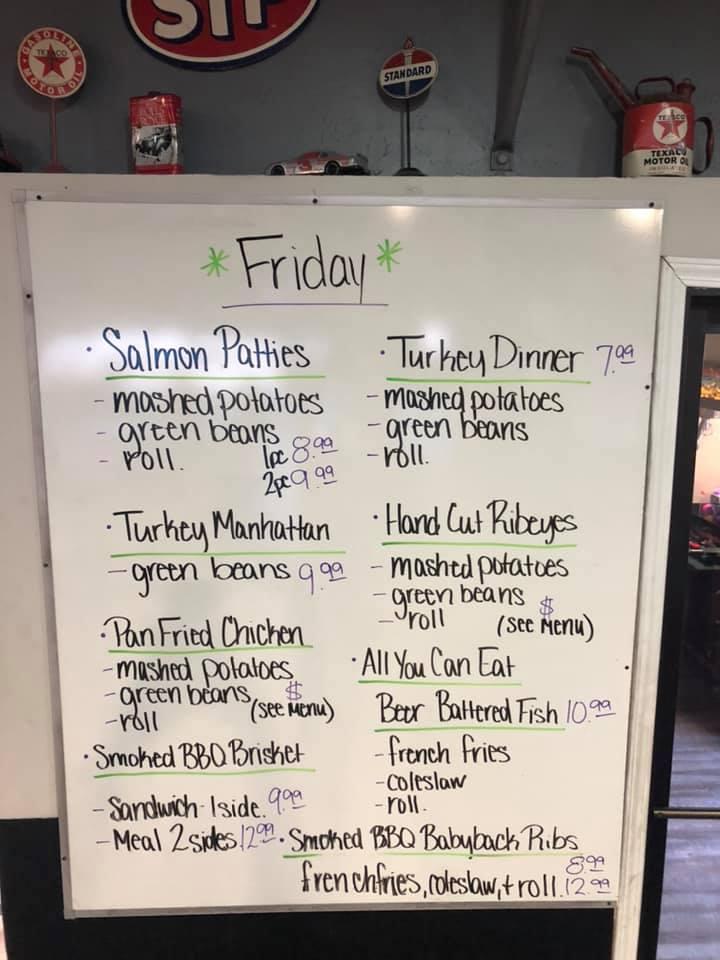 STP
GASOLINE
TEXACO
MOTOR OIL
STANDARD
TEXACO
MOTOR OIL
* Friday *
· Salmon Patties
- mashed potatoes
- green beans
- roll. 1pc 8.99
2pc 9.99
· Turkey Dinner 7.99
- mashed potatoes
- green beans
- roll.
· Turkey Manhattan
- green beans 9.99
· Hand Cut Ribeyes
- mashed potatoes
- green beans $
- roll (see Menu)
· Pan Fried Chicken
- mashed potatoes
- green beans $
- roll (see Menu)
· All You Can Eat
Beer Battered Fish 10.99
- french fries
- coleslaw
- roll.
· Smoked BBQ Brisket
- Sandwich - 1 side. 9.99
- Meal 2 sides 12.99
· Smoked BBQ Babyback Ribs
8.99
french fries, coleslaw, + roll. 12.99